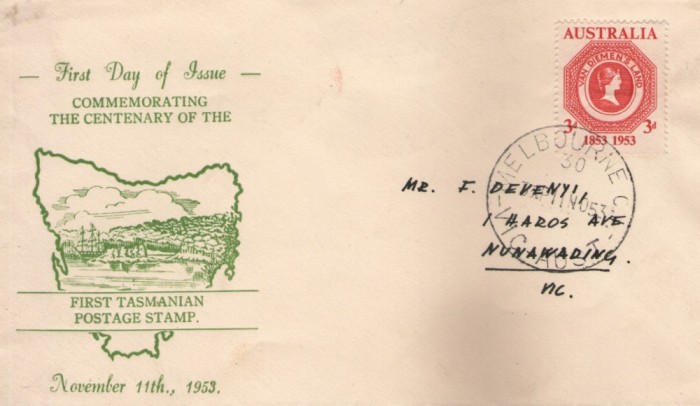 — First Day of Issue —
COMMEMORATING
THE CENTENARY OF THE
FIRST TASMANIAN
POSTAGE STAMP.
November 11th., 1953.
AUSTRALIA
VAN DIEMEN'S LAND
3d 3d
1853 1953
MELBOURNE
30
11NO53
VIC-AUST
MR. F. DEVENYI,
1 HAROS AVE
NUNAWADING.
VIC.